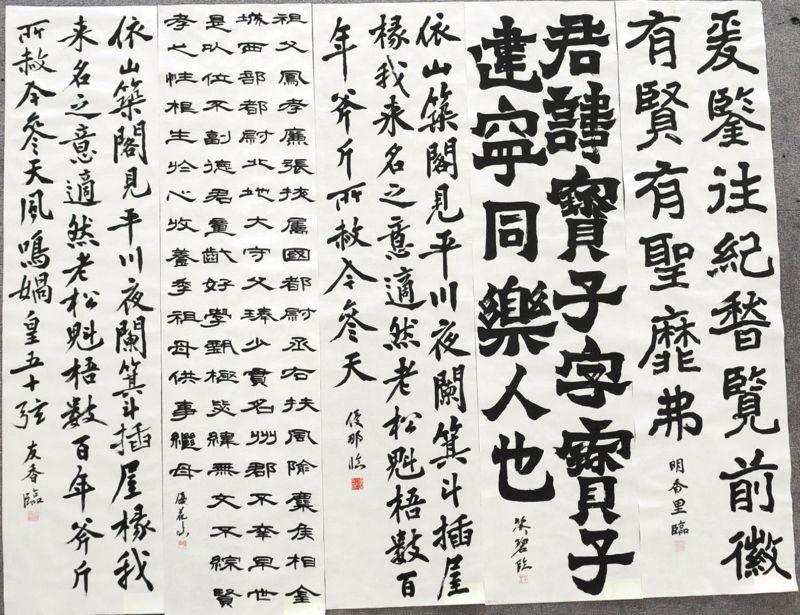 爰鑒往紀稽覽前徽
有賢有聖靡弗
明香里臨
君諱寶子字寶子
建寧同樂人也
碧臨
依山築閣見平川夜闌箕斗插屋
椽我来名之意適然老松魁梧數百
年斧斤所赦今參天
臨
祖父鳳孝廉張掖屬國都尉丞右扶風隃麋侯相金
城西部都尉北地大守父琫少貫名州郡不幸早世
是以位不副德君童齔好學甄極毖緯無文不綜賢
孝之性根生於心收養季祖母供事繼母
依山築閣見平川夜闌箕斗插屋椽我
来名之意適然老松魁梧數百年斧斤
所赦今參天風鳴媧皇五十弦
友香臨